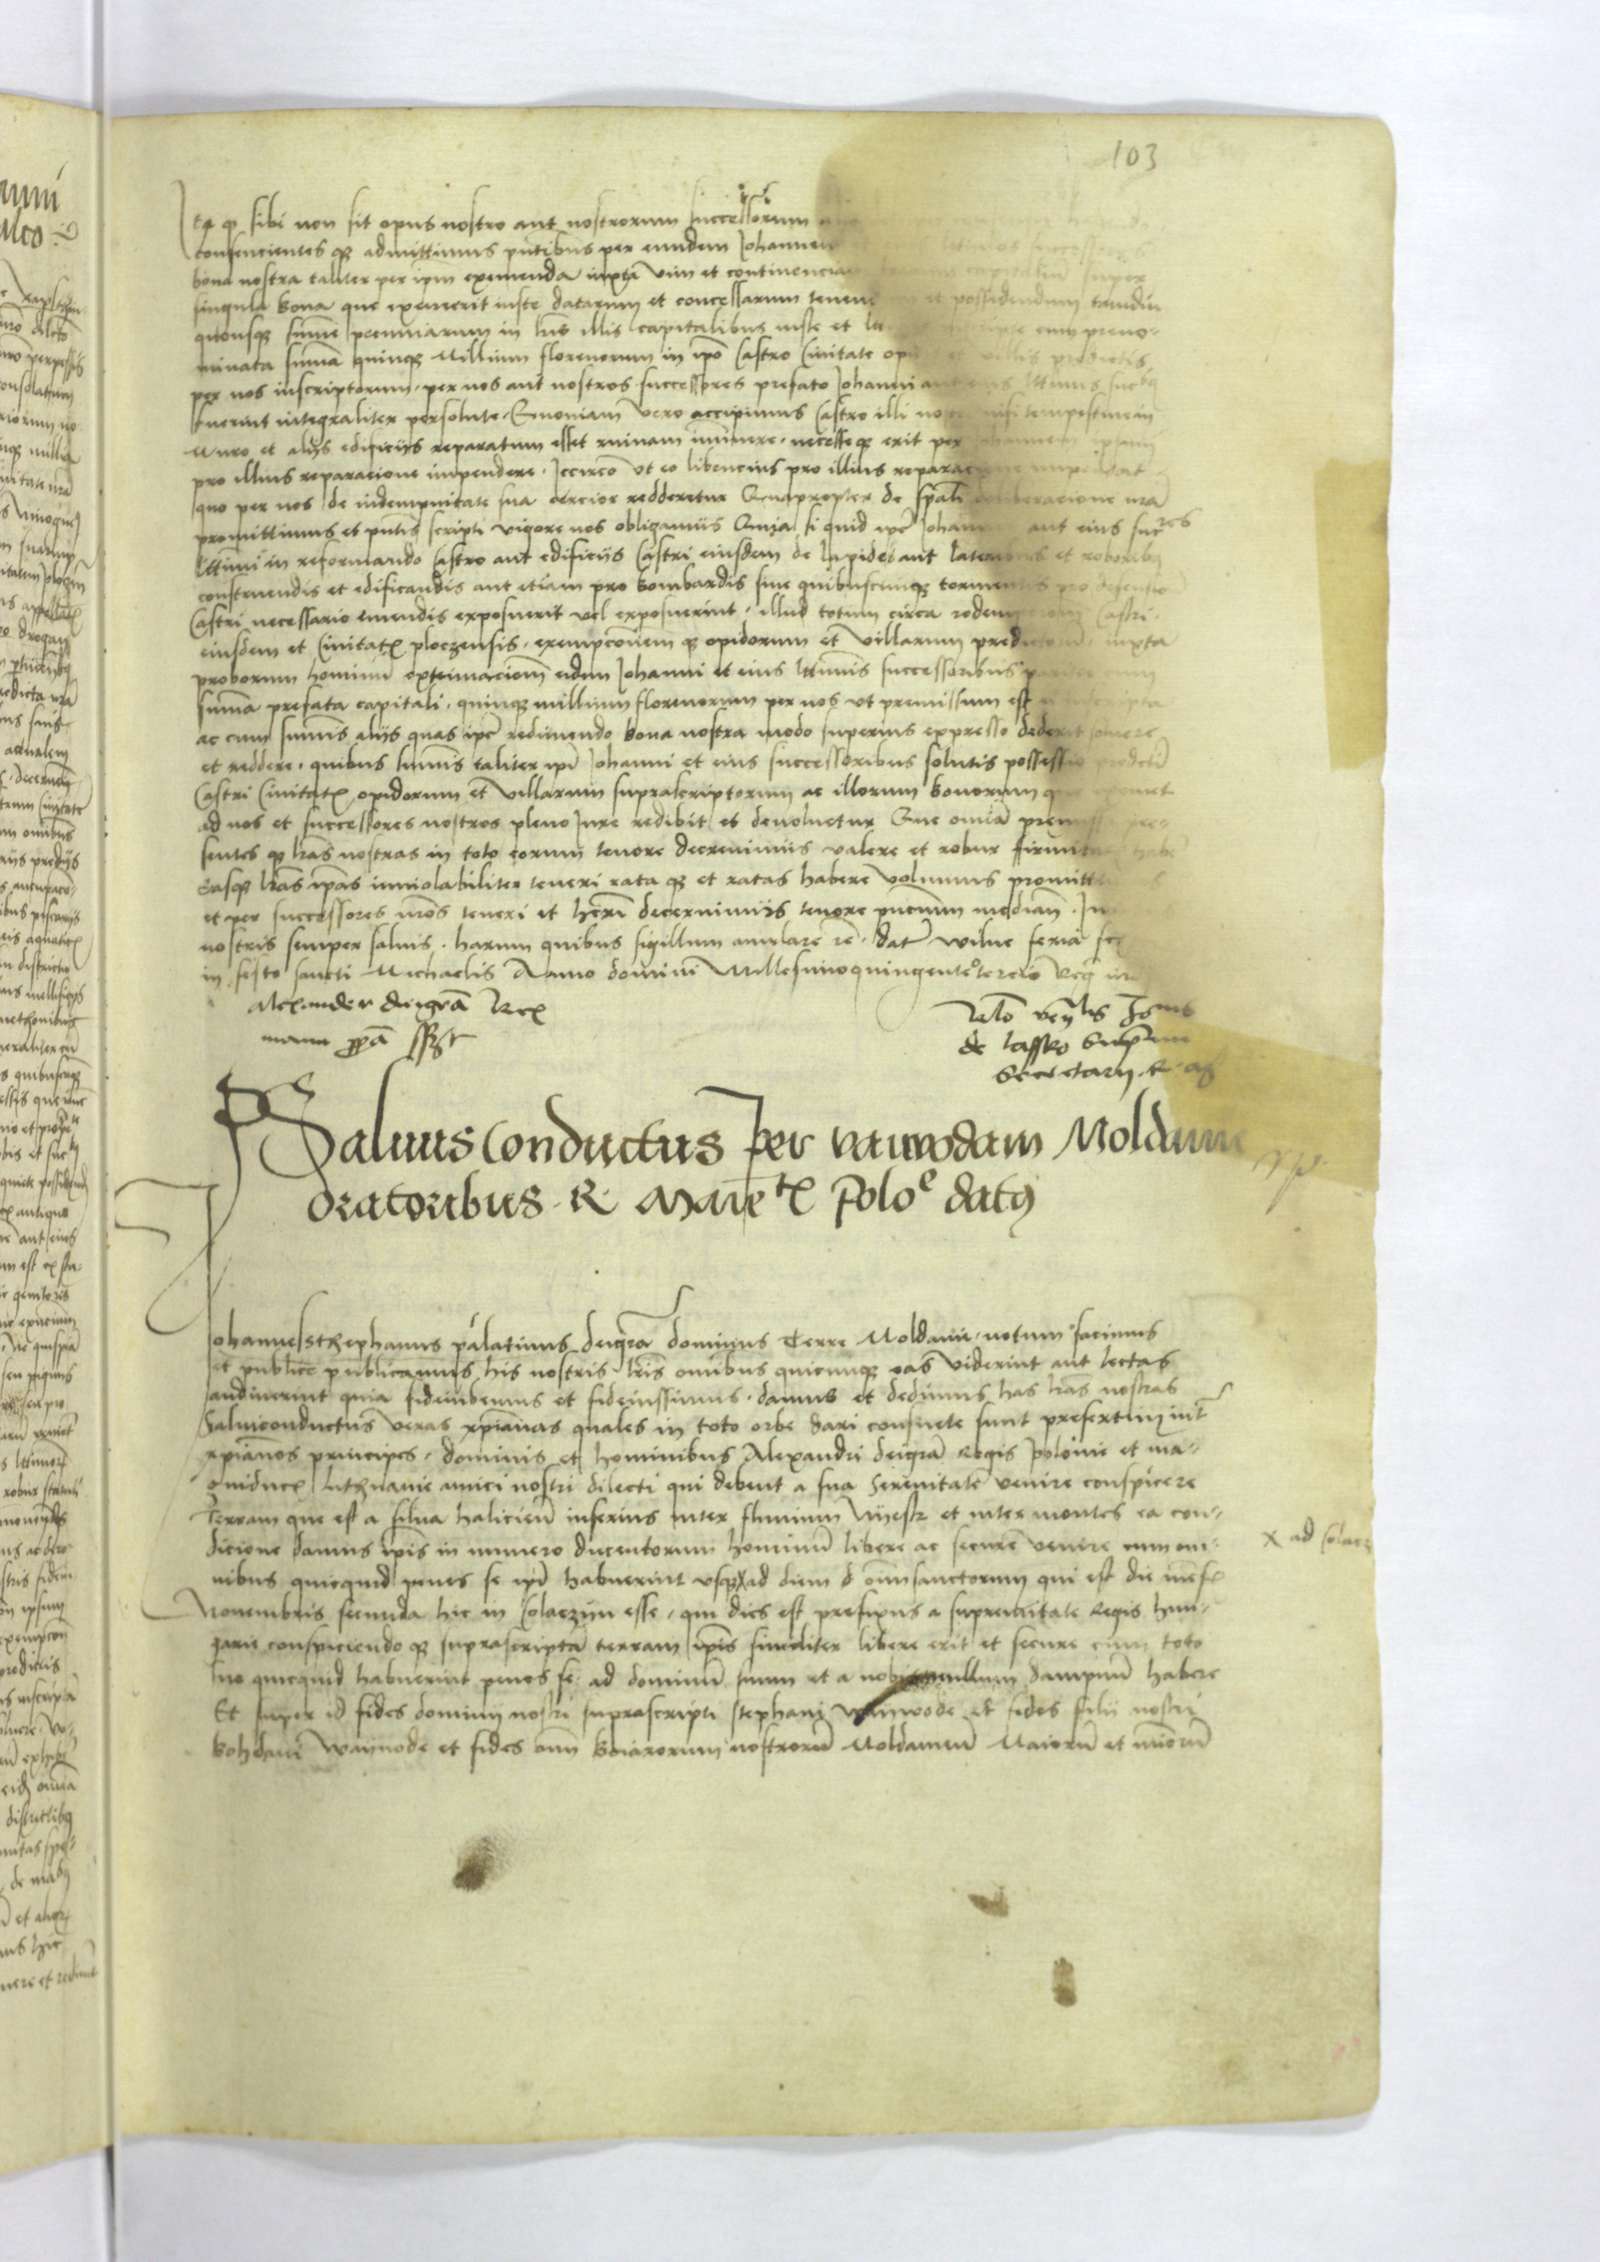 103
Ita qz sibi non sit opus nostro aut nostrorum successorum
consencientes qz admittimus pntibus per eundem Johannem
bona nostra taliter per ipm eximenda iuxta vim et continenciam super
singula bona que exemerit iuste datarum et concessarum tenendum et possidendum tamdiu
quousqz summe pecuniarum in lris illis capitalibus iuste et cum preno-
minata summa quinqz Millium florenorum in ipo Castro Civitate opidis et villis predictis
per nos inscriptorum, per nos aut nostros successores prefato Johanni aut eius lttimis
fuerint integraliter persolute. Quoniam vero accipimus Castro illi nostro nisi tempestive in
Muro et alys edificiys reparatum esset ruinam iminere, necesseqz erit per Johannem ipsum
pro illius reparacione inpendere. Iccirco vt eo libencius pro illius reparacione inpendat
quo per nos de indempnitate sua cercior redderetur Quapropter de spali deliberacione nra
promittimus et pntis scripti vigore nos obligamus Quia si quid ipe Johannes aut eius succres
lttimi in reformando Castro aut edificiys Castri eiusdem de lapide aut lateribus et roboribz
construendis et edificandis aut etiam pro bombardis sive quibuscunqz tormentis pro defensione
Castri necessario emendis exposuerit vel exposuerint, illud totum circa redempcionem Castri
eiusdem et Civitatis ploczensis, exempcionem qz opidorum et villarum predictorum, iuxta
proborum hominu extimacionem eidem Johanni et eius lttimis successoribus pariter cum
summa prefata capitali, quinqz millium florenorum per nos vt premissum est inscripta
ac cum summis alys quas ipe redimendo bona nostra modo superius expresso dederit solvere
et reddere, quibus summis taliter ipi Johanni et eius successoribus solutis possessio predicti
Castri Civitatis opidorum et villarum suprascriptorum ac illorum bonorum que exemit
ad nos et successores nostros pleno Jure redibit et devolvetur Que omia premissa pre-
sentes qz lras nostras in toto eorum tenore decrevimus valere et robur firmitatis habere
Easqz lras ipas inviolabiliter teneri rata qz et ratas habere volumus promittimus
et per successores nros teneri et heri decernimus tenore pncium median. Juribus
nostris semper salvis. harum quibus sigillum anulare re. dat wilne feria
in festo sancti Michaelis Anno domini Millesimoquingentetercio Reg
Alexander deigra Rex
manu ppa sszt
Rlo venlis Jois
de lassko Supremi
Secretary R
Salvus Conductus per vaivvodam Moldavie
oratoribus R Maietis Poloe datus
Johannes Sthephanus palatinus deigra dominus Terre Moldavie, notum facimus
et publice publicamus his nostris lris omibus quicunqz eas viderint aut lectas
audiverint quia fideiubemus et fideiussimus. damus et dedimus has lras nostras
Salviconductus veras xpianas quales in toto orbe dari consuete sunt presertim intr
xpianos principes, dominis et hominibus Alexandri deigra Regis polonie et ma-
gniducis luthuanie amici nostri dilecti qui debent a sua Serenitate venire conspicere
Terram que est a silva halicien inferius inter fluvium Niestr et inter montes ea con-
dicione damus ipis in numero ducentorum hominu libere ac secure venire cum om-
nibus quicquid penes se ipi habuerint vsqz x ad diem omisanctorum qui est die mesis
Novembris secunda hic in Colaczijn esse, qui dies est prefixus a supremitate Regis hun-
garie conspiciendo qz suprascripta terram ipis similiter libere erit et secure cum toto
suo quicquid habuerint penes se ad dominu suum et a nobis nullum dampnu habere
Et super id fides domini nostri suprascripti stephani wayvode et fides filii nostri
bohdani wayvode et fides oim boiarorum nostroru Moldavieu Maioru et mioru
x ad Colacz